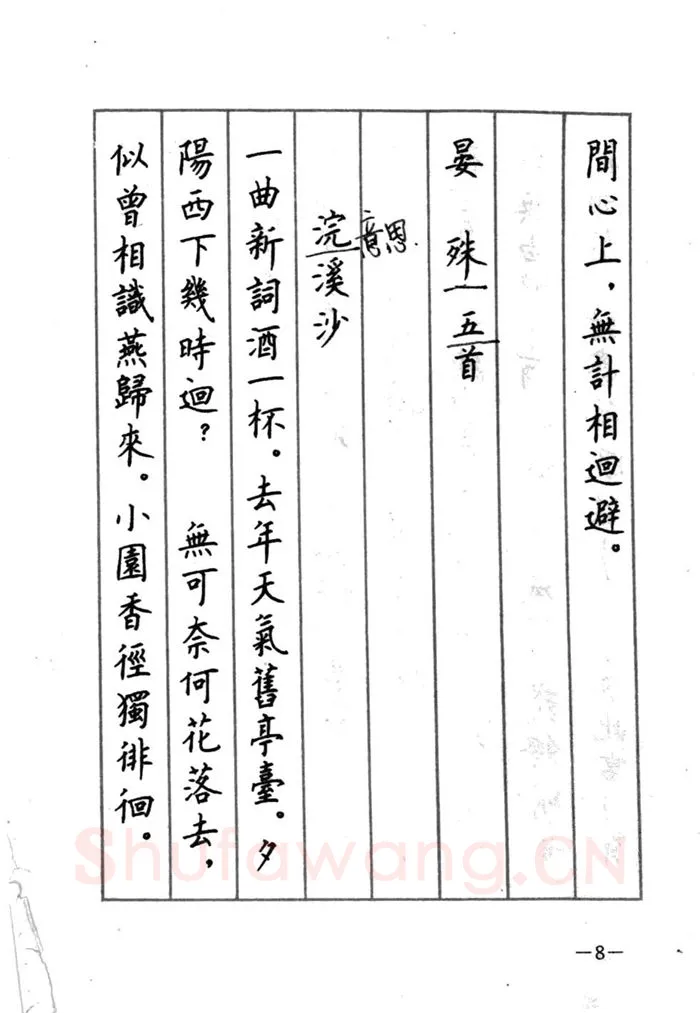 間心上，無計相迴避。
晏 殊一五首
意恩
浣溪沙
一曲新詞酒一杯。去年天氣舊亭臺。夕
陽西下幾時迴？ 無可奈何花落去，
似曾相識燕歸來。小園香徑獨徘徊。
Shufawang.CN
—8—